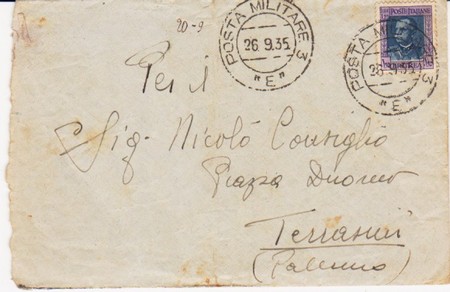 20-9
POSTA MILITARE 3
26.9.35
"E"
POSTE ITALIANE
POSTA MILITARE 3
26.9.35
"E"
Per il
Sig. Nicolò Consiglio
Piazza Duomo
Terrasini
(Palermo)